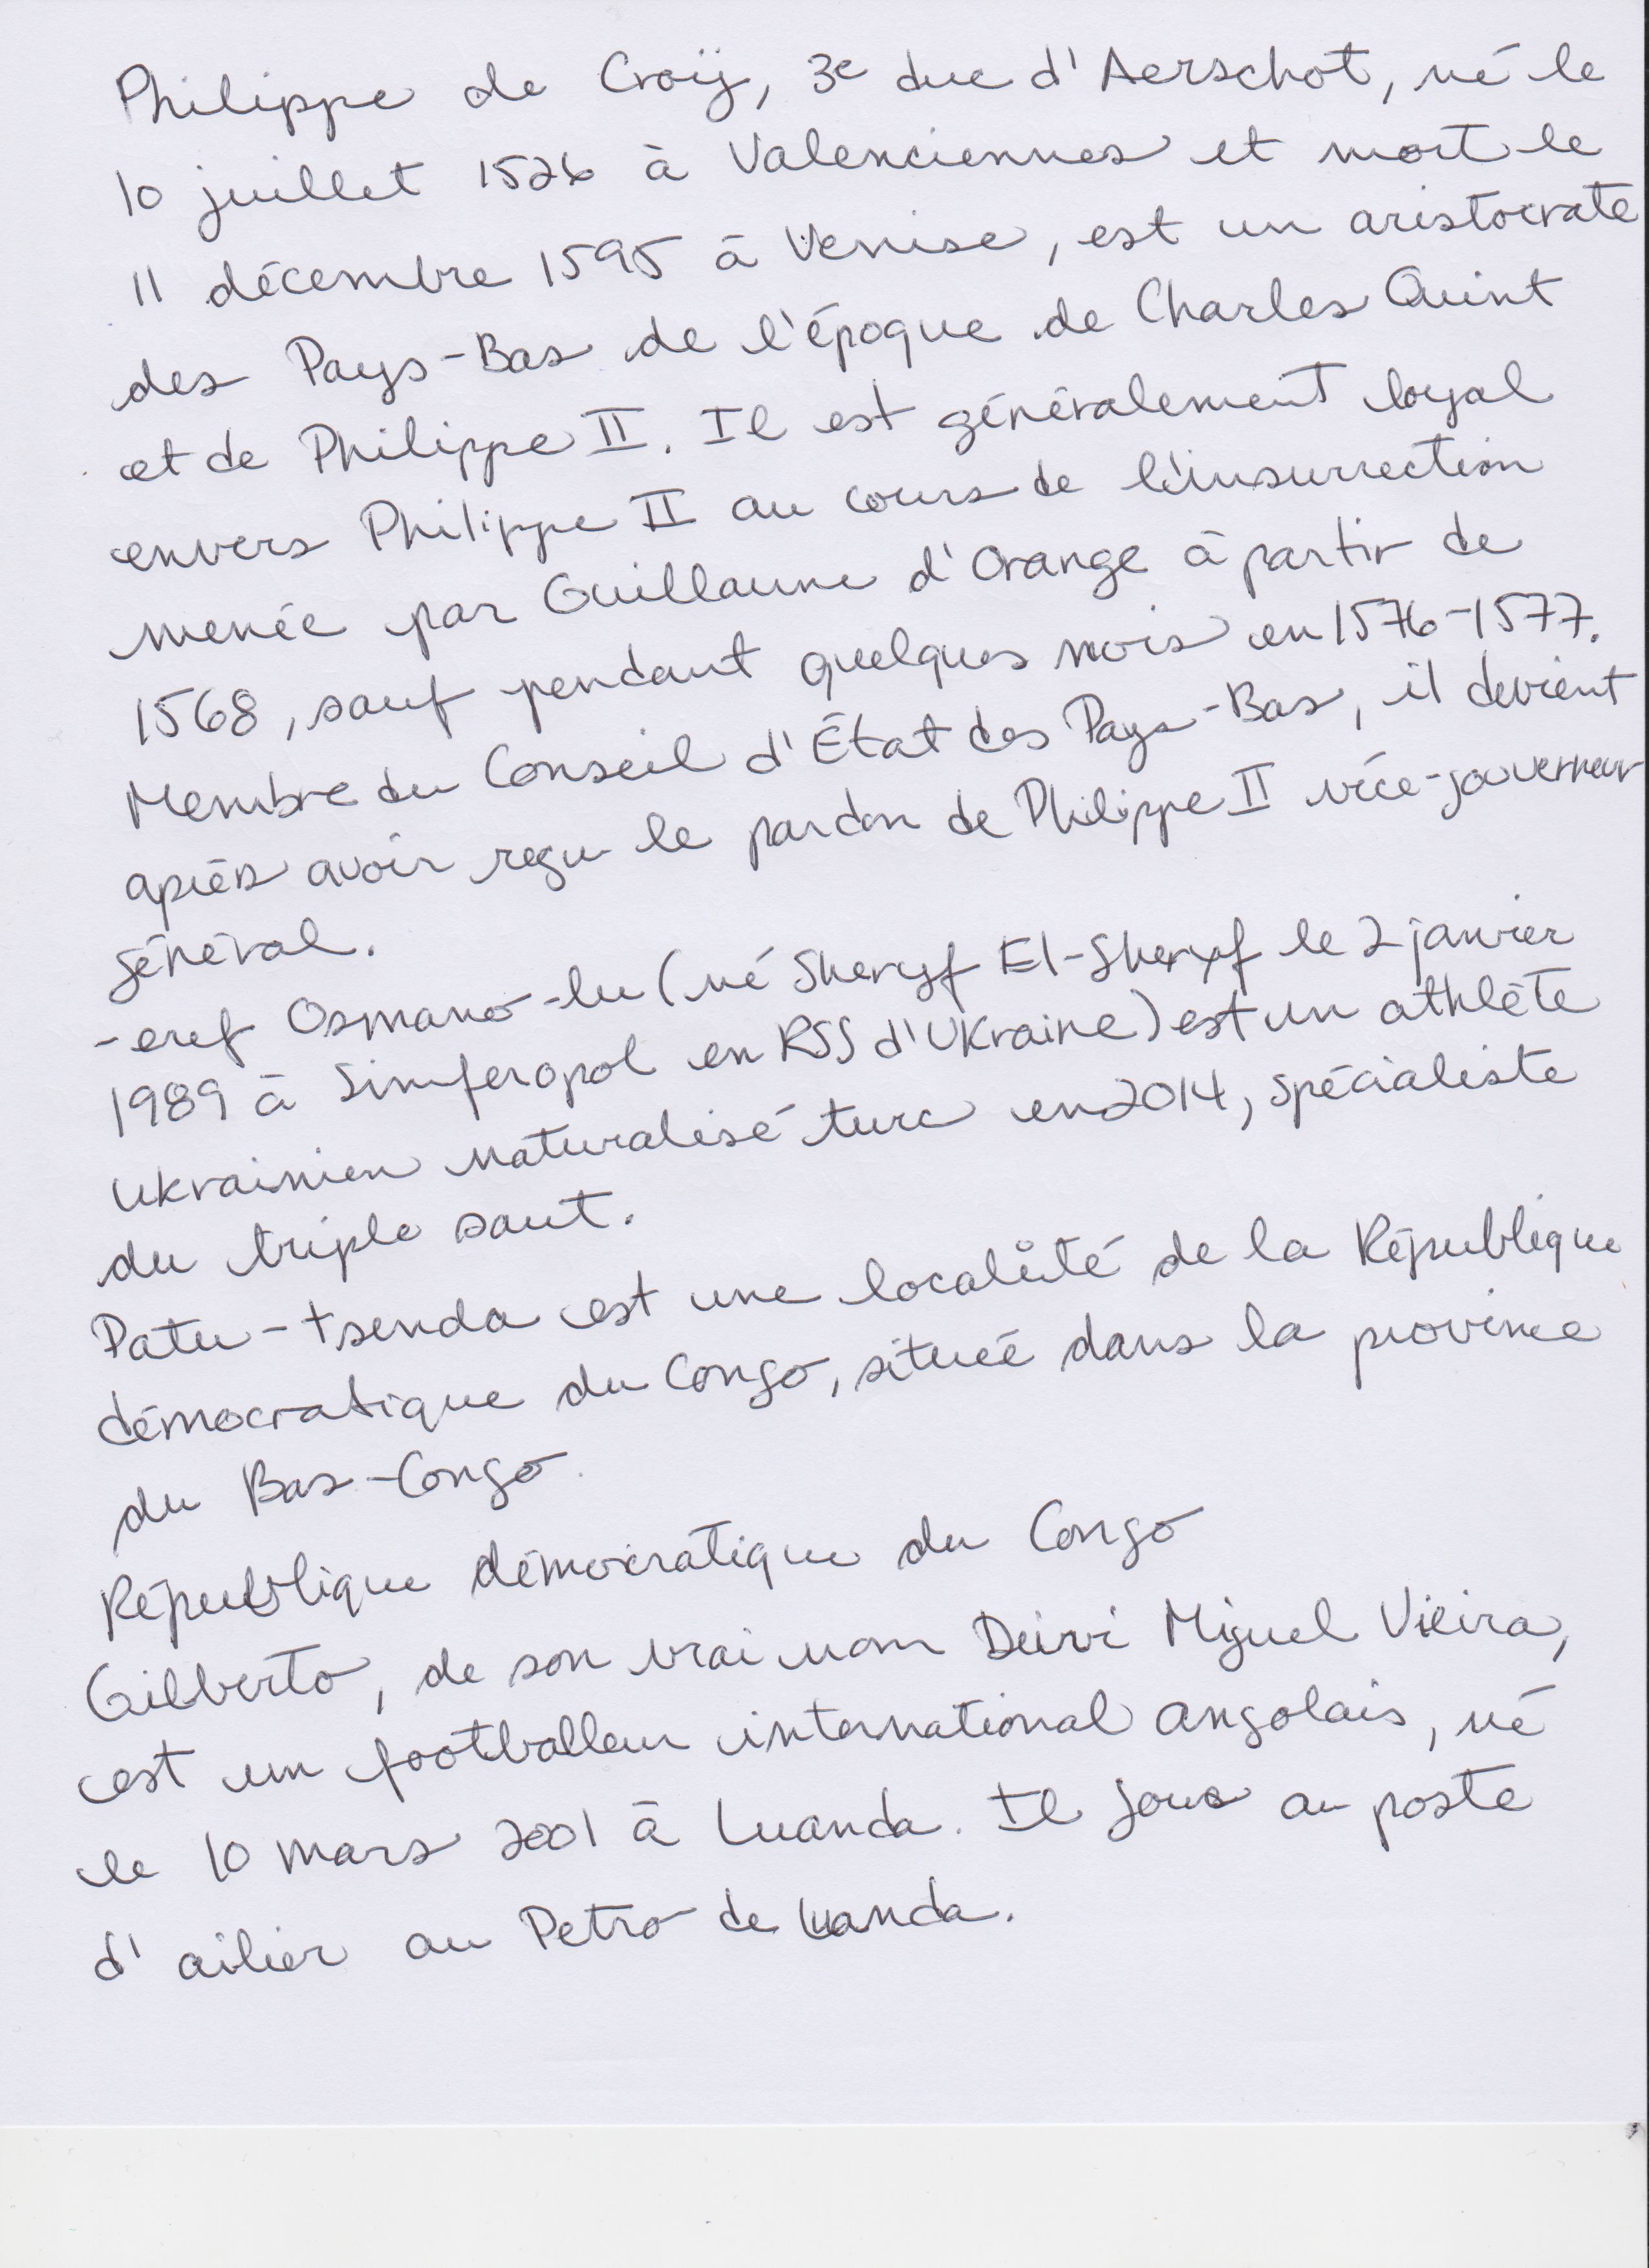 Philippe de Croÿ, 3e duc d'Aerschot, né le
10 juillet 1526 à Valenciennes et mort le
11 décembre 1595 à Venise, est un aristocrate
des Pays-Bas de l'époque de Charles Quint
et de Philippe II. Il est généralement loyal
envers Philippe II au cours de l'insurrection
menée par Guillaume d'Orange à partir de
1568, sauf pendant quelques mois en 1576-1577.
Membre du Conseil d'État des Pays-Bas, il devient
après avoir reçu le pardon de Philippe II vice-gouverneur
général.
-eref Osmano-lu (né Sheryf El-Sheryf le 2 janvier
1989 à Simferopol en RSS d'Ukraine) est un athlète
ukrainien naturalisé turc en 2014, spécialiste
du triple saut.
Patu-tsenda est une localité de la République
démocratique du Congo, située dans la province
du Bas-Congo.
République démocratique du Congo
Gilberto, de son vrai nom Deivi Miguel Vieira,
est un footballeur international angolais, né
le 10 mars 2001 à Luanda. Il joue au poste
d'ailier au Petro de Luanda.